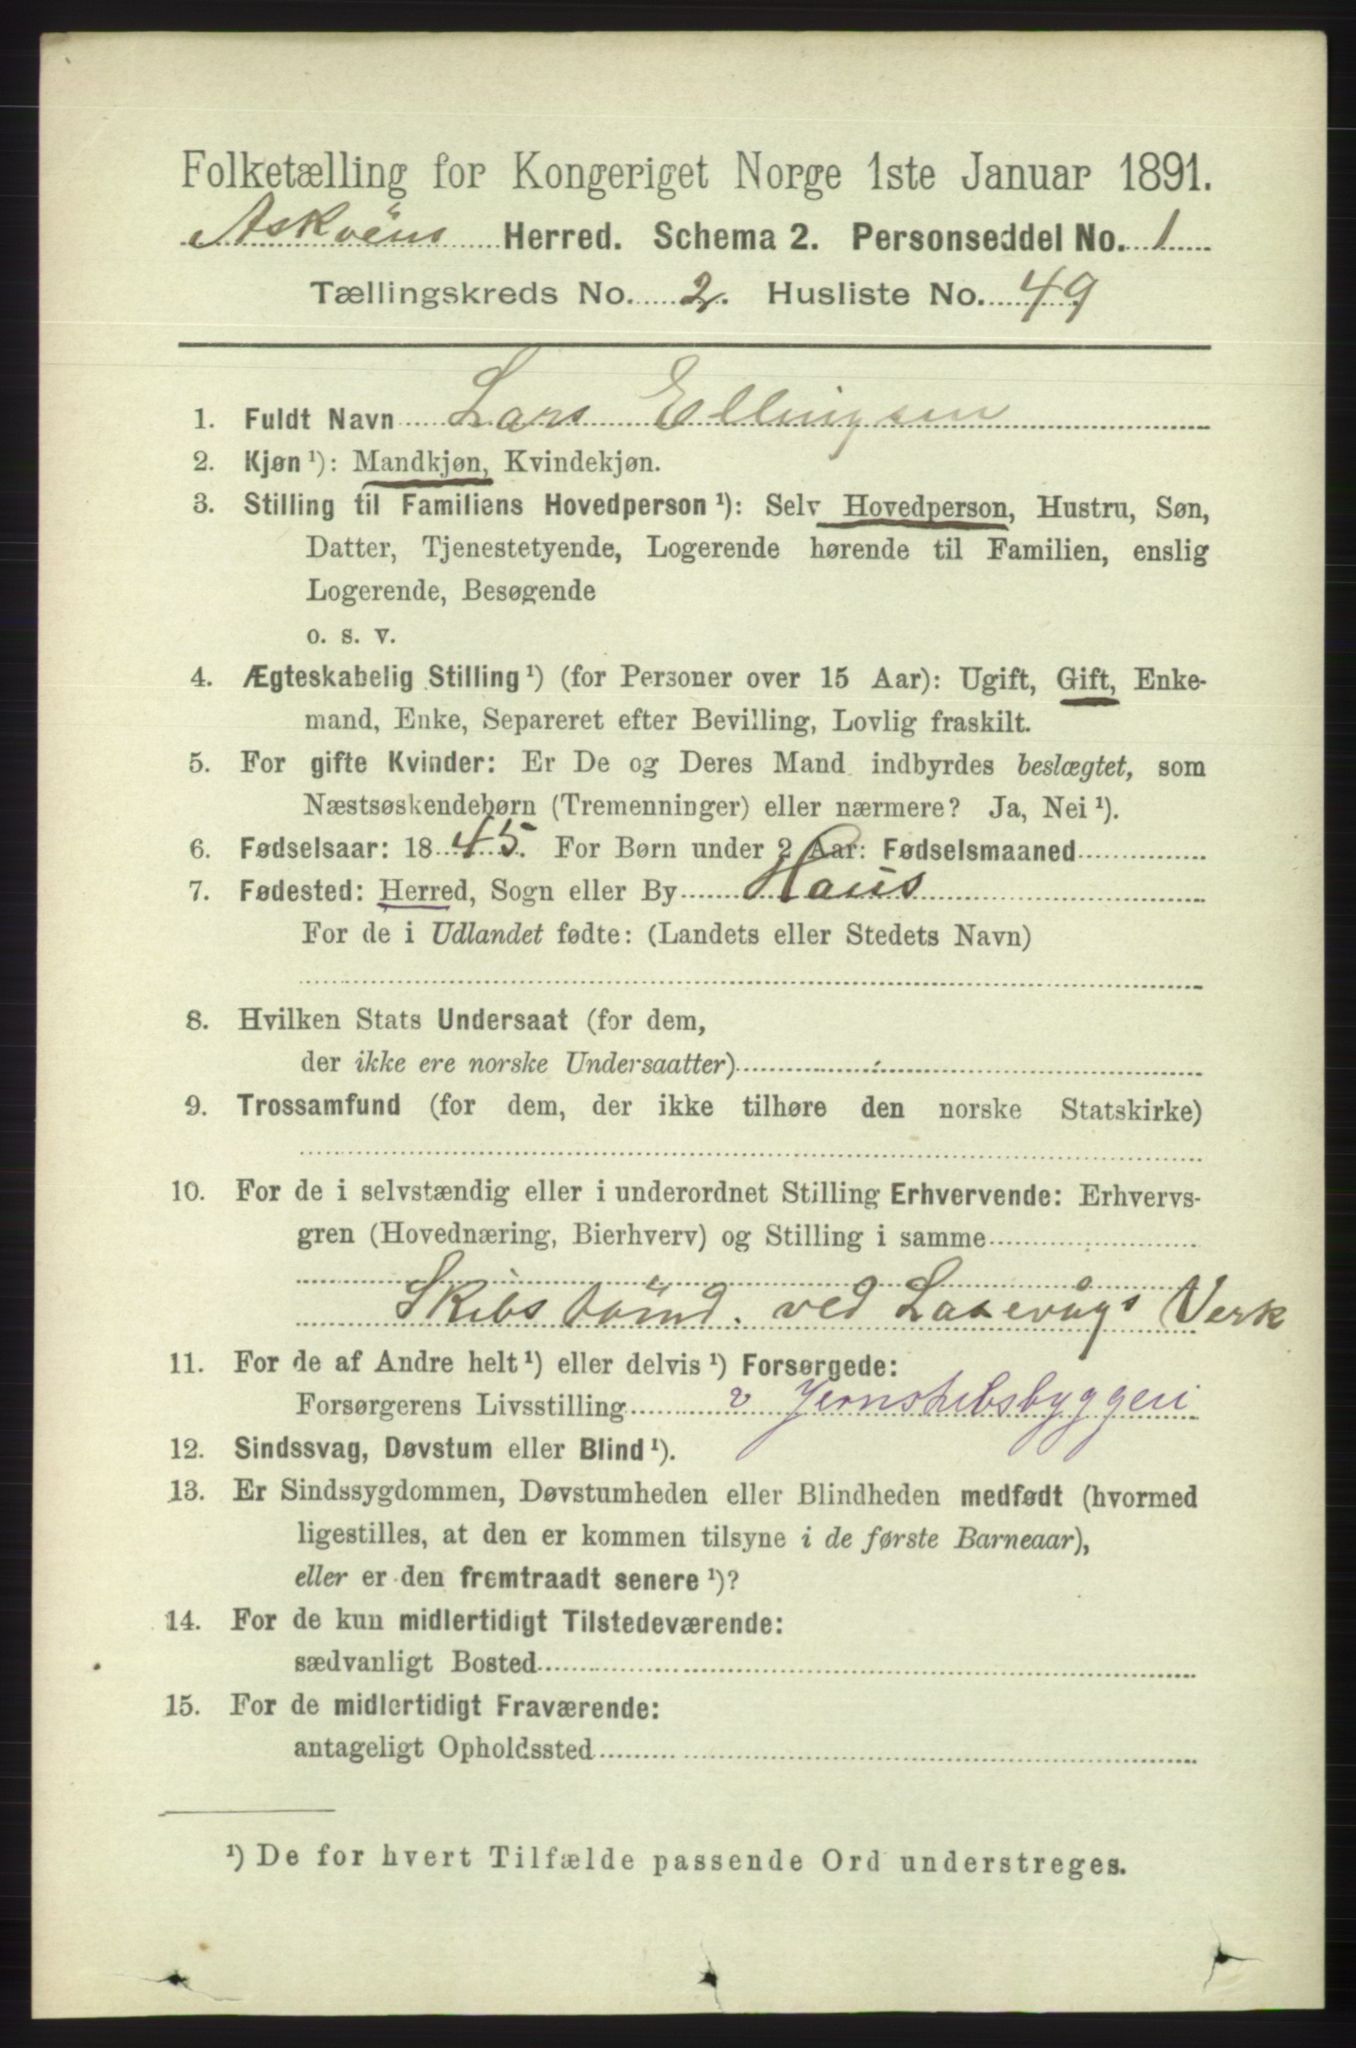 Folketælling for Kongeriget Norge 1ste Januar 1891.
Askøens Herred. Schema 2. Personseddel No. 1
Tællingskreds No. 2. Husliste No. 49
1. Fuldt Navn Lars Ellingsen
2. Kjøn ¹): Mandkjøn, Kvindekjøn.
3. Stilling til Familiens Hovedperson ¹): Selv Hovedperson, Hustru, Søn,
Datter, Tjenestetyende, Logerende hørende til Familien, enslig
Logerende, Besøgende
o. s. v.
4. Ægteskabelig Stilling ¹) (for Personer over 15 Aar): Ugift, Gift, Enke-
mand, Enke, Separeret efter Bevilling, Lovlig fraskilt.
5. For gifte Kvinder: Er De og Deres Mand indbyrdes beslægtet, som
Næstsøskendebørn (Tremenninger) eller nærmere? Ja, Nei ¹).
6. Fødselsaar: 1845. For Børn under 2 Aar: Fødselsmaaned
7. Fødested: Herred, Sogn eller By Haus
For de i Udlandet fødte: (Landets eller Stedets Navn)
8. Hvilken Stats Undersaat (for dem,
der ikke ere norske Undersaatter)
9. Trossamfund (for dem, der ikke tilhøre den norske Statskirke)
10. For de i selvstændig eller i underordnet Stilling Erhvervende: Erhvervs-
gren (Hovednæring, Bierhverv) og Stilling i samme
Skibstømd. ved Laxevågs Verk
11. For de af Andre helt ¹) eller delvis ¹) Forsørgede:
Forsørgerens Livsstilling v Jernskibsbyggeri
12. Sindssvag, Døvstum eller Blind ¹).
13. Er Sindssygdommen, Døvstumheden eller Blindheden medfødt (hvormed
ligestilles, at den er kommen tilsyne i de første Barneaar),
eller er den fremtraadt senere ¹)?
14. For de kun midlertidigt Tilstedeværende:
sædvanligt Bosted
15. For de midlertidigt Fraværende:
antageligt Opholdssted
¹) De for hvert Tilfælde passende Ord understreges.